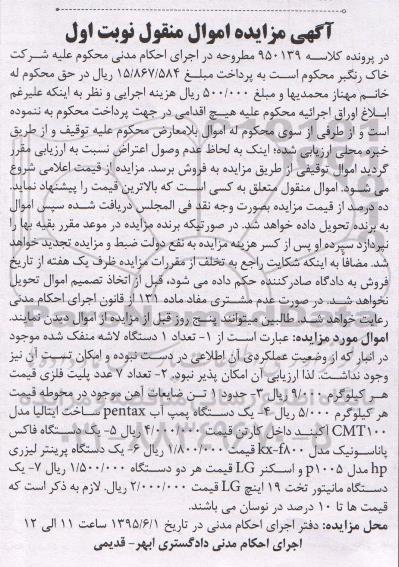 آگهی مزایده اموال منقول نوبت اول
در پرونده کلاسه ۹۵۰۱۳۹ مطروحه در اجرای احکام مدنی محکوم علیه شرکت
خاک رنگبر محکوم است به پرداخت مبلغ ۱۵/۸۶۷/۵۸۴ ریال در حق محکوم له
خانم مهناز محمدیها و مبلغ ۵۰۰/۰۰۰ ریال هزینه اجرایی و نظر به اینکه علیرغم
ابلاغ اوراق اجرائیه محکوم علیه هیچ اقدامی در جهت پرداخت محکوم به ننموده
است و از طرفی از سوی محکوم له اموال بلامعارض محکوم علیه توقیف و از طریق
خبره محلی ارزیابی شده؛ اینک به لحاظ عدم وصول اعتراض نسبت به ارزیابی مقرر
گردید اموال توقیفی از طریق مزایده به فروش برسد. مزایده از قیمت اعلامی شروع
می شود. اموال منقول متعلق به کسی است که بالاترین قیمت را پیشنهاد نماید.
ده درصد از قیمت مزایده بصورت وجه نقد فی المجلس دریافت شده سپس اموال
به برنده تحویل داده خواهد شد. در صورتیکه برنده مزایده در موعد مقرر بقیه بها را
نپردازد سپرده او پس از کسر هزینه مزایده به نفع دولت ضبط و مزایده تجدید خواهد
شد. مضافاً به اینکه شکایت راجع به تخلف از مقررات مزایده ظرف یک هفته از تاریخ
فروش به دادگاه صادرکننده حکم داده می شود، قبل از اتخاذ تصمیم اموال تحویل
نخواهد شد. در صورت عدم مشتری مفاد ماده ۱۳۱ از قانون اجرای احکام مدنی
رعایت خواهد شد. طالبین میتوانند پنج روز قبل از مزایده از اموال دیدن نمایند.
اموال مورد مزایده: عبارت است از ۱- تعداد ۱ دستگاه لاشه منفک شده موجود
در انبار که از وضعیت عملکردی آن اطلاعی در دست نبوده و امکان تست آن نیز
وجود نداشت. لذا ارزیابی آن امکان پذیر نبود. ۲- تعداد ۷ عدد پلیت فلزی قیمت
هر کیلوگرم ۹/۱۰۰ ریال ۳- حدود ۱ تن ضایعات آهن موجود در محوطه قیمت
هر کیلوگرم ۵/۰۰۰ ریال ۴- یک دستگاه پمپ آب pentax ساخت ایتالیا مدل
CMT۱۰۰ آکبند داخل کارتن قیمت ۴/۰۰۰/۰۰۰ ریال ۵- یک دستگاه فاکس
پاناسونیک مدل kx-f۸۰۰ قیمت ۱/۸۰۰/۰۰۰ ریال ۶- یک دستگاه پرینتر لیزری
hp مدل p۱۰۰۵ و اسکنر LG قیمت هر دو دستگاه ۱/۵۰۰/۰۰۰ ریال ۷- یک
دستگاه مانیتور تخت ۱۹ اینچ LG قیمت ۲/۰۰۰/۰۰۰ ریال. لازم به ذکر است که
قیمت ها تا ۱۰ درصد در نوسان می باشند.
محل مزایده: دفتر اجرای احکام مدنی در تاریخ ۱۳۹۵/۶/۱ ساعت ۱۱ الی ۱۲
اجرای احکام مدنی دادگستری ابهر- قدیمی